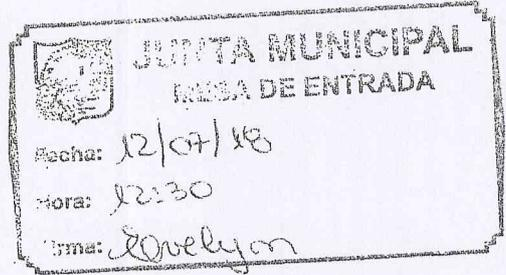 JUNTA MUNICIPAL
MESA DE ENTRADA
Fecha: 12/07/18
Hora: 12:30
Firma: